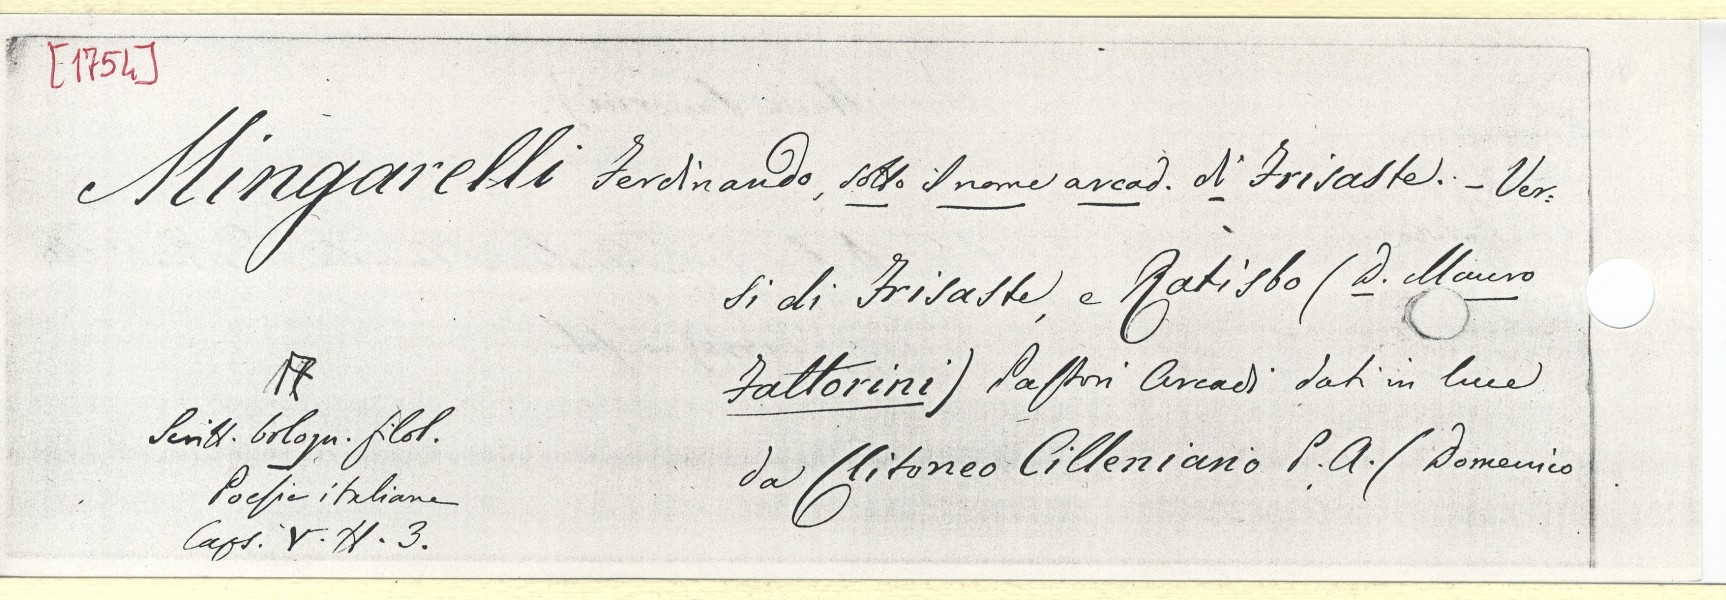 [1754]
Mingarelli Ferdinando, sotto il nome arcad. di Frisaste. - Ver=
si di Frisaste, e Ratisbo (D. Mauro
Fattorini) Pastori Arcadi dati in luce
da Clitoneo Cilleniano P. A. (Domenico
17
Scritt. bologn. filol.
Poesie italiane
Caps. V. H. 3.